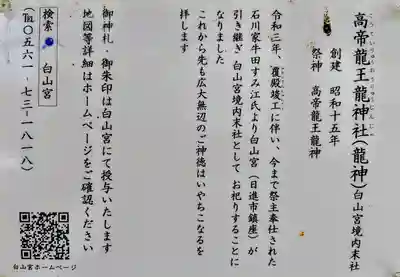 高帝龍王龍神社(龍神)白山宮境内末社
こうていりゅうおうりゅうじんじゃ
創建　昭和十五年
祭神　高帝龍王龍神
令和三年、覆殿竣工に伴い、今まで祭主奉仕された
石川家牛田すみ江氏より白山宮(日進市鎮座)が
引き継ぎ白山宮境内末社としてお祀りすることに
なりました
これから先も広大無辺のご神徳はいやちこなるを
拝します
御神札・御朱印は白山宮にて授与いたします
地図等詳細はホームページをご確認ください
検索 白山宮
(℡〇五六一-七三-一八一八)
白山宮ホームページ